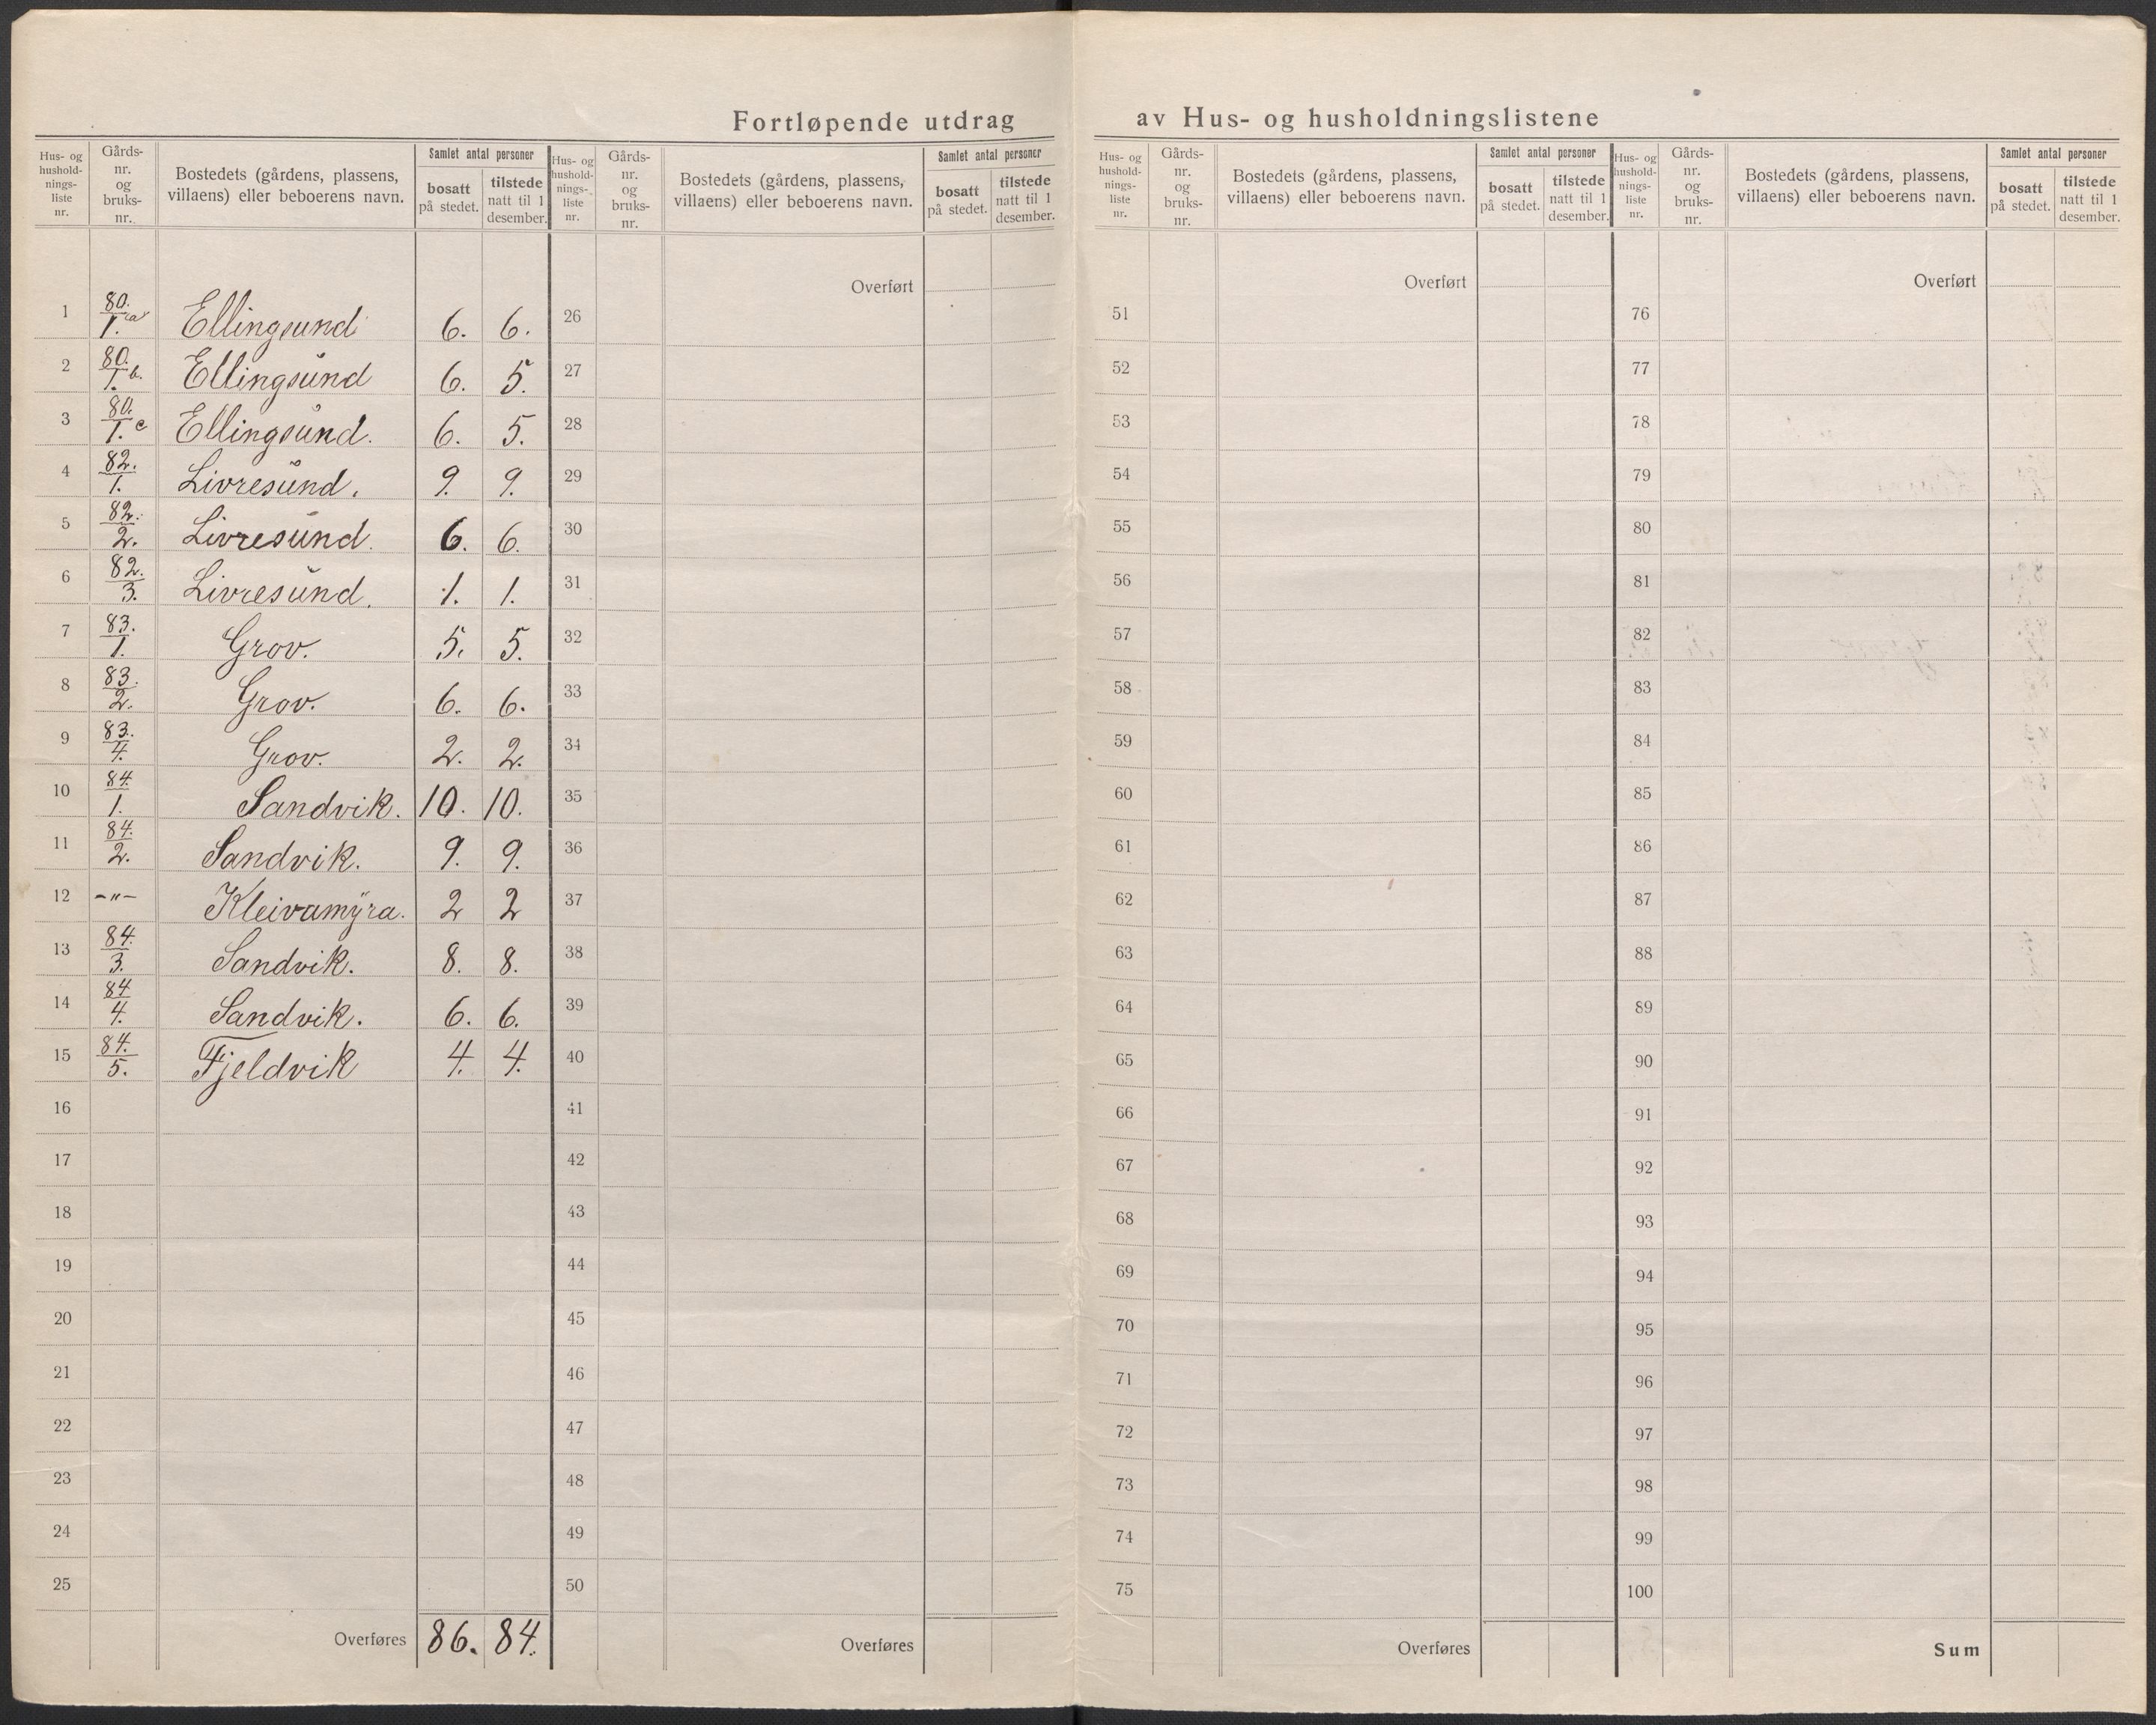 Fortløpende utdrag av Hus- og husholdningslistene
Hus- og hushold-nings-liste nr. | Gårds-nr. og bruks-nr. | Bostedets (gårdens, plassens, villaens) eller beboerens navn. | Samlet antal personer | bosatt på stedet. | tilstede natt til 1 desember.
1 80./1. a Ellingsund 6. 6.
2 80./1. b. Ellingsund 6. 5.
3 80./1. c Ellingsund. 6. 5.
4 82./1. Livresund. 9. 9.
5 82./2. Livresund. 6. 6.
6 82./3. Livresund. 1. 1.
7 83./1. Grov. 5. 5.
8 83./2. Grov. 6. 6.
9 83./4. Grov. 2. 2.
10 84./1. Sandvik. 10. 10.
11 84./2. Sandvik. 9. 9.
12 -"- Kleivamyra. 2 2
13 84./3. Sandvik. 8. 8.
14 84/4. Sandvik. 6. 6.
15 84./5. Fjeldvik 4. 4.
16
17
18
19
20
21
22
23
24
25
Overføres 86. 84.
Hus- og hushold-nings-liste nr. | Gårds-nr. og bruks-nr. | Bostedets (gårdens, plassens, villaens) eller beboerens navn. | Samlet antal personer | bosatt på stedet. | tilstede natt til 1 desember.
Overført
26
27
28
29
30
31
32
33
34
35
36
37
38
39
40
41
42
43
44
45
46
47
48
49
50
Overføres
Hus- og hushold-nings-liste nr. | Gårds-nr. og bruks-nr. | Bostedets (gårdens, plassens, villaens) eller beboerens navn. | Samlet antal personer | bosatt på stedet. | tilstede natt til 1 desember.
Overført
51
52
53
54
55
56
57
58
59
60
61
62
63
64
65
66
67
68
69
70
71
72
73
74
75
Overføres
Hus- og hushold-nings-liste nr. | Gårds-nr. og bruks-nr. | Bostedets (gårdens, plassens, villaens) eller beboerens navn. | Samlet antal personer | bosatt på stedet. | tilstede natt til 1 desember.
Overført
76
77
78
79
80
81
82
83
84
85
86
87
88
89
90
91
92
93
94
95
96
97
98
99
100
Sum